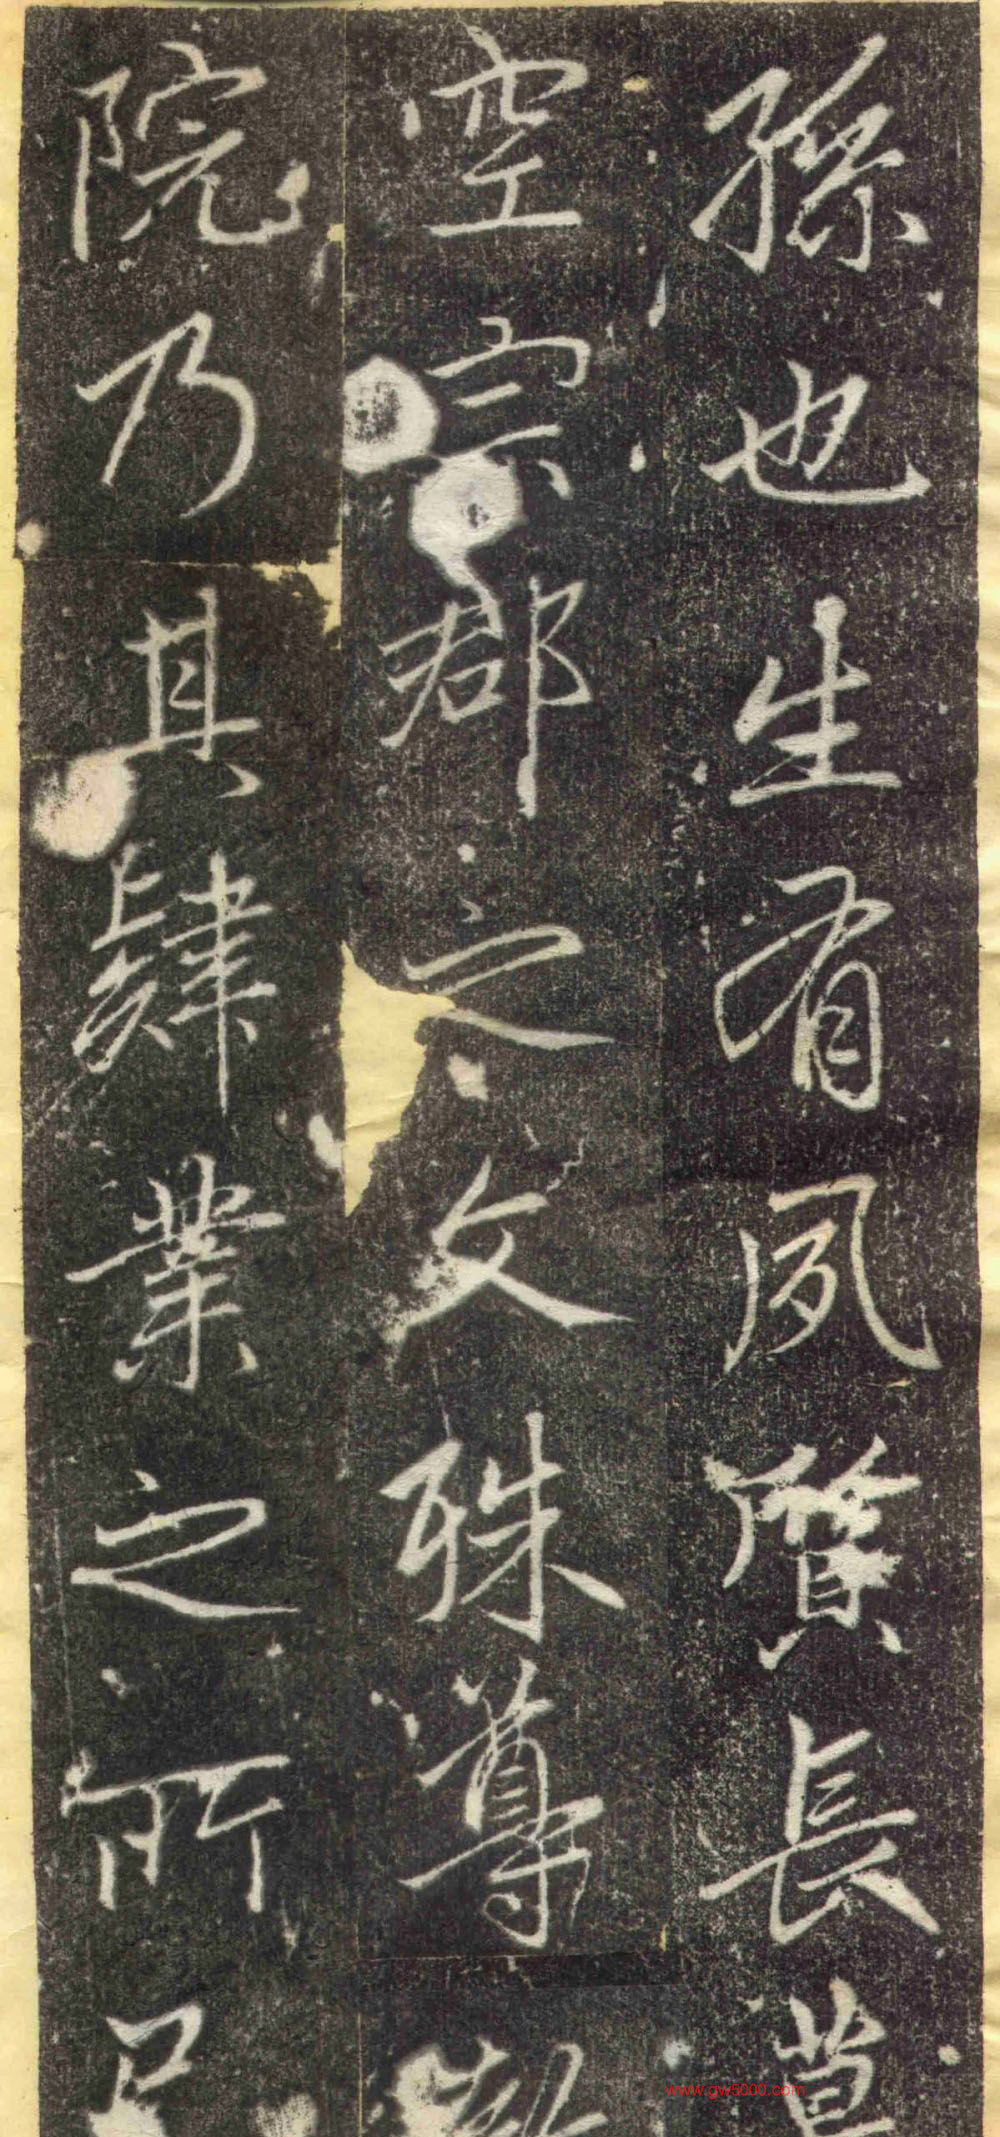 孫也生有夙質長
空宗郡之文殊尊
院乃其肄業之所
www.gw5000.com